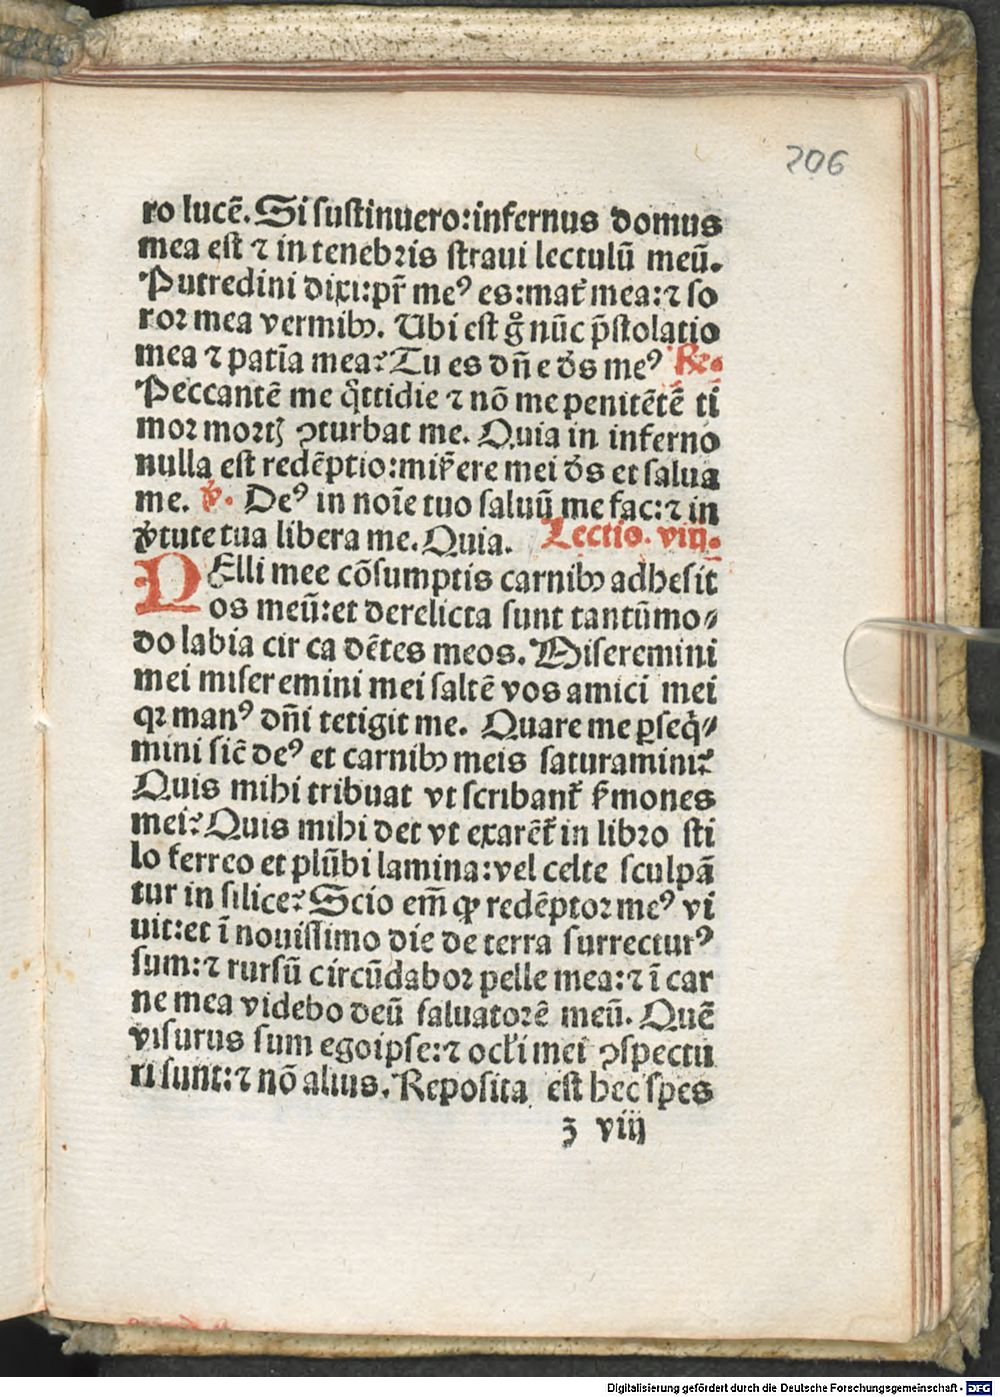 206
ro lucē. Si sustinuero:infernus domus
mea est ⁊ in tenebris straui lectulū meū.
Putredini dixi:pr̄ meꝰ es:mat᷑ mea:⁊ so
ror mea vermibꝫ. Ubi est gͦ nūc p̄stolatio
mea ⁊ patīa mea? Tu es dn̄e d̄s meꝰ ℟.
Peccantē me q̊ttidie ⁊ nō me penitētē ti
mor mortꝭ ꝯturbat me. Quia in inferno
nulla est redēptio:mis̄ere mei d̄s et salua
me. ℣. Deꝰ in noīe tuo saluū me fac:⁊ in
v̓tute tua libera me. Quia. Lectio. viij.
PElli mee cōsumptis carnibꝫ adhesit
os meū:et derelicta sunt tantūmo⸗
do labia cir ca dētes meos. Miseremini
mei miser emini mei saltē vos amici mei
qꝛ manꝰ dn̄i tetigit me. Quare me ꝑseq̇⸗
mini sic̄ deꝰ et carnibꝫ meis saturamini?
Quis mihi tribuat vt scribant᷑ s̓mones
mei? Quis mihi det vt exarēt᷑ in libro sti
lo ferreo et plūbi lamina:vel celte sculpā
tur in silice? Scio em̄ ꝙ redēptor meꝰ vi
uit:et ī nouissimo die de terra surrecturꝰ
sum:⁊ rursū circūdabor pelle mea:⁊ ī car
ne mea videbo deū saluatorē meū. Quē
visurus sum egoipse:⁊ ocl̓i mei ꝯspectu
ri sunt:⁊ nō alius. Reposita est hec spes
ʒ viij
Digitalisierung gefördert durch die Deutsche Forschungsgemeinschaft - DFG